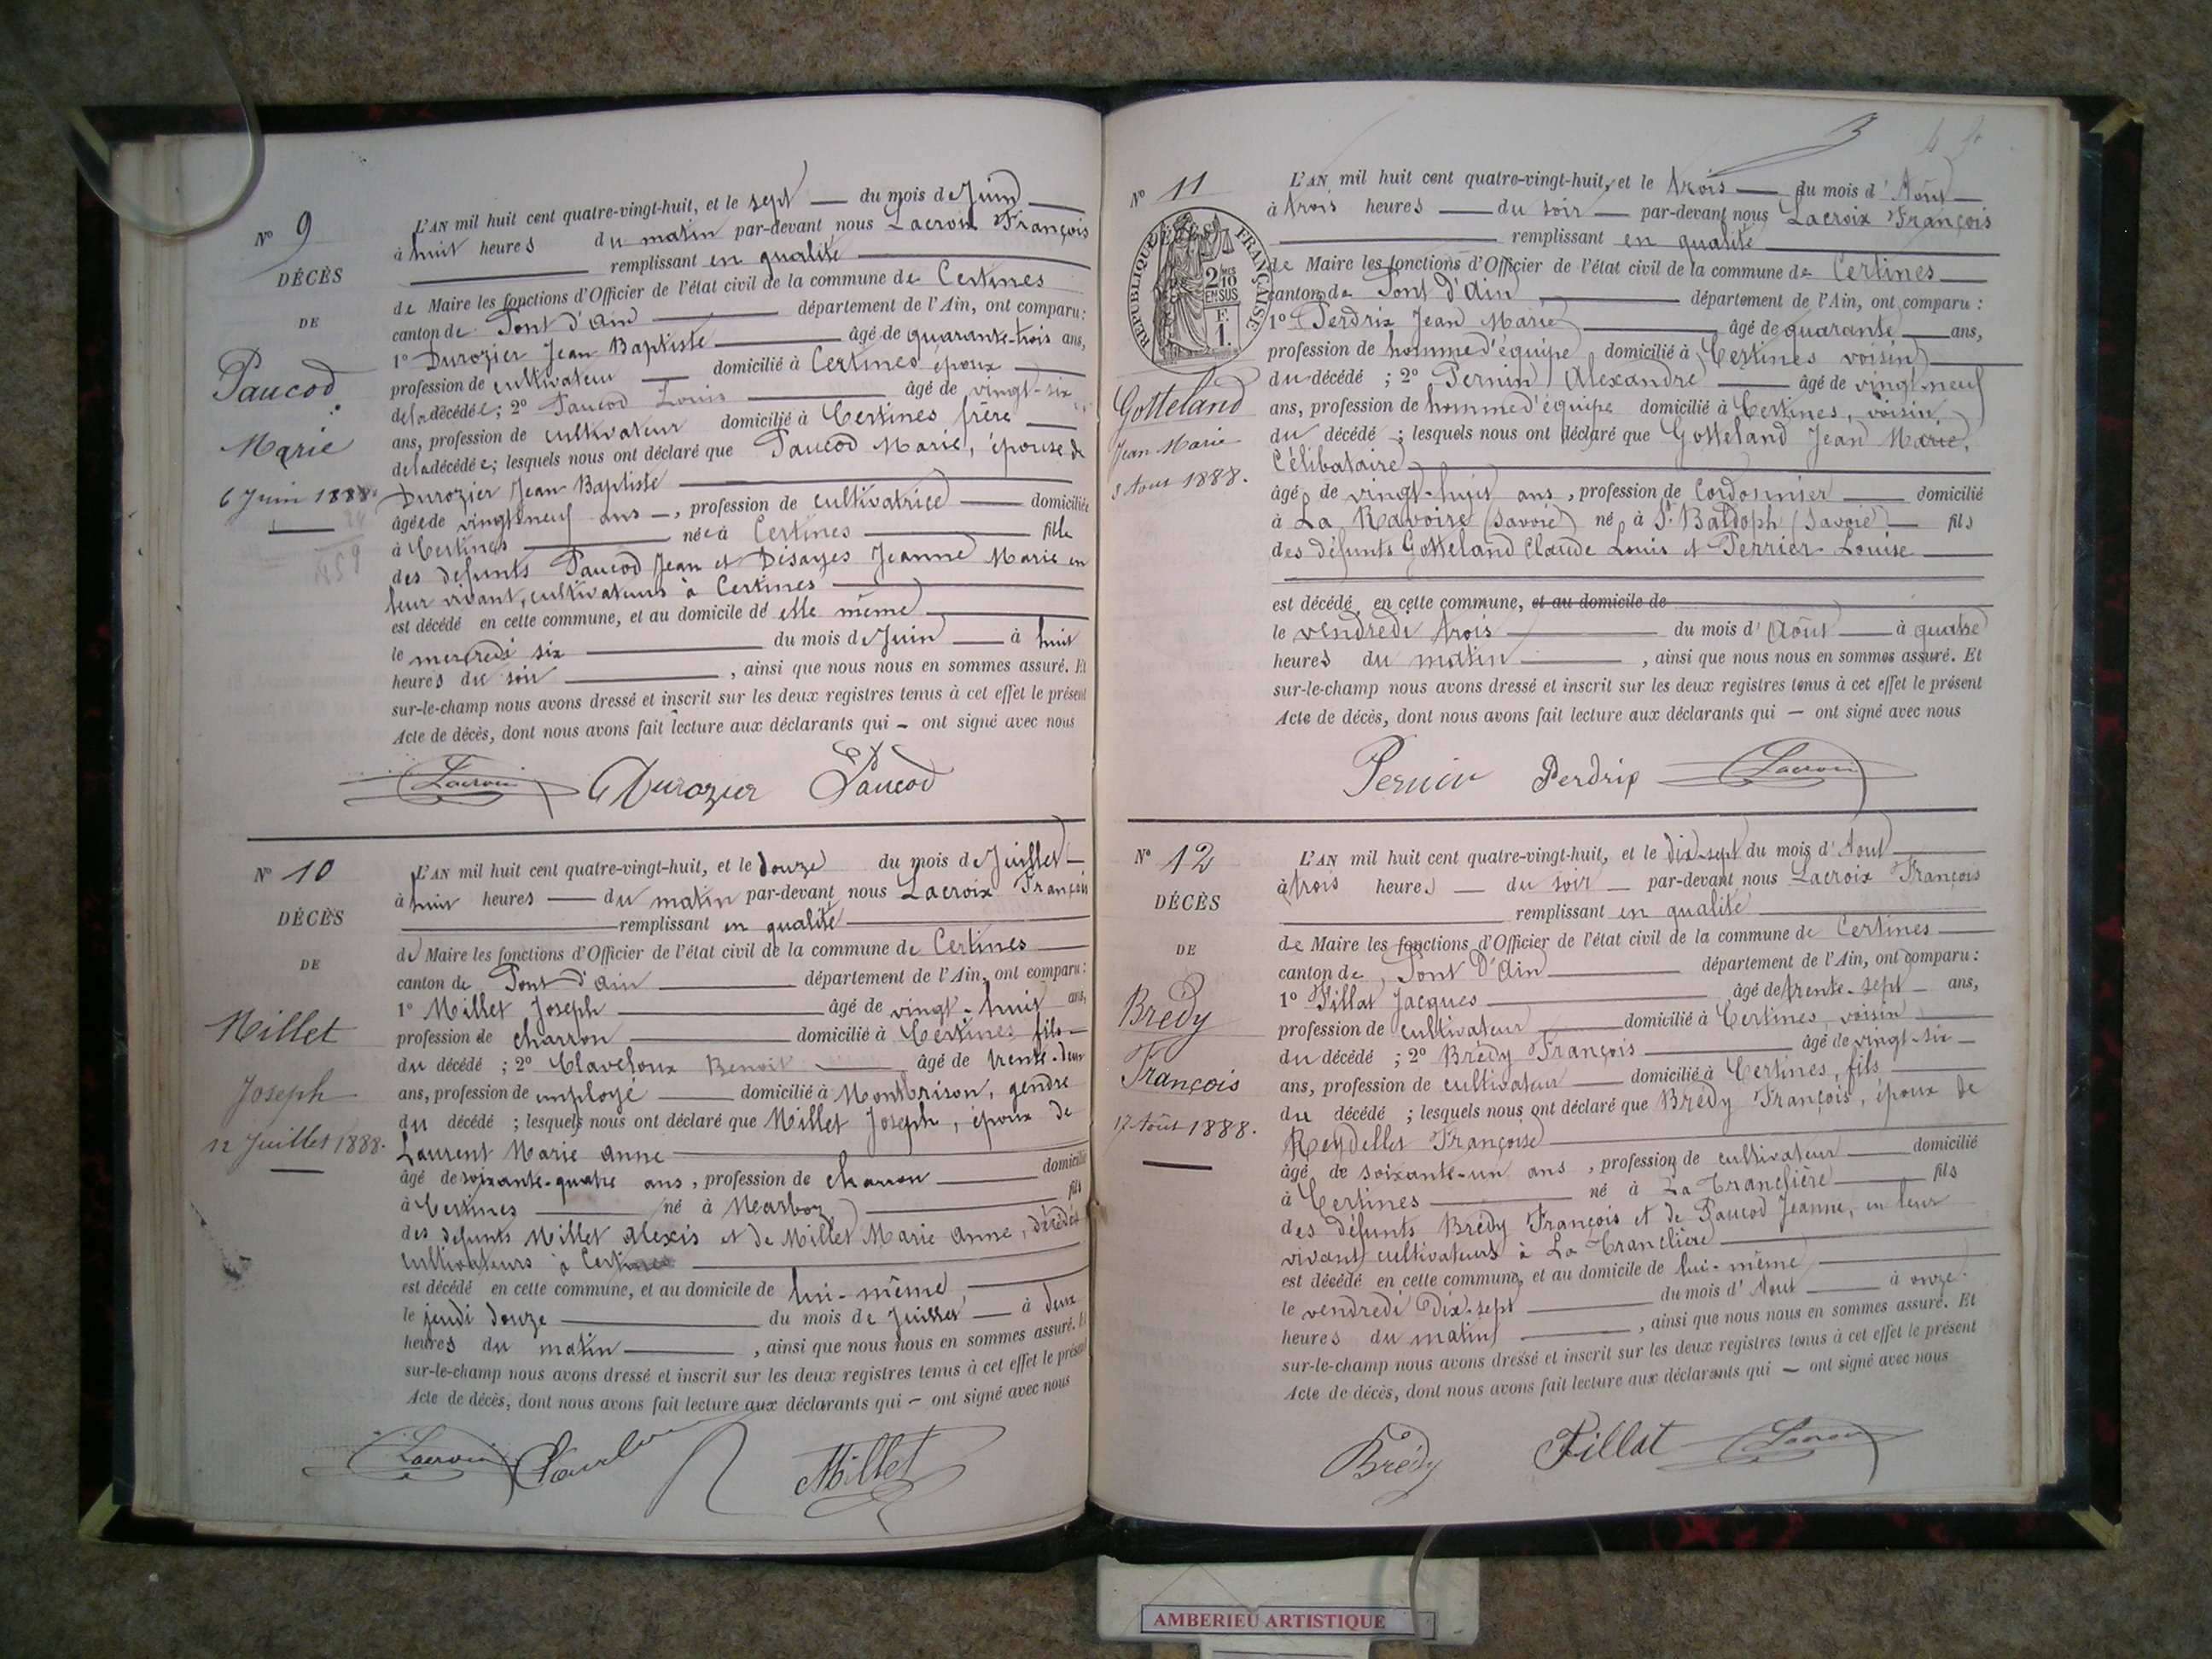 Nº 9
DÉCÈS
DE
Paucod
Marie
6 Juin 1888.
L'AN mil huit cent quatre-vingt-huit, et le sept du mois de Juin
à huit heures du matin par-devant nous Lacroix François
remplissant en qualité
de Maire les fonctions d'Officier de l'état civil de la commune de Certines
canton de Pont d'Ain département de l'Ain, ont comparu:
1º Durozier Jean Baptiste âgé de quarante-trois ans,
profession de cultivateur domicilié à Certines époux
de la décédée; 2º Paucod Louis âgé de vingt-six
ans, profession de cultivateur domicilié à Certines frère
de la décédée; lesquels nous ont déclaré que Paucod Marie, épouse de
Durozier Jean-Baptiste
âgée de vingt-neuf ans, profession de cultivatrice domiciliée
à Certines née à Certines fille
des défunts Paucod Jean et Désayes Jeanne Marie en
leur vivant, cultivateurs à Certines
est décédé en cette commune, et au domicile de elle même
le mercredi six du mois de Juin à huit
heures du soir, ainsi que nous nous en sommes assuré. Et
sur-le-champ nous avons dressé et inscrit sur les deux registres tenus à cet effet le présent
Acte de décès, dont nous avons fait lecture aux déclarants qui – ont signé avec nous
Lacroix Durozier Paucod
Nº 10
DÉCÈS
DE
Millet
Joseph
12 Juillet 1888.
L'AN mil huit cent quatre-vingt-huit, et le douze du mois de Juillet
à huit heures du matin par-devant nous Lacroix François
remplissant en qualité
de Maire les fonctions d'Officier de l'état civil de la commune de Certines
canton de Pont d'Ain département de l'Ain, ont comparu:
1º Millet Joseph âgé de vingt-huit ans,
profession de charron domicilié à Certines fils
du décédé; 2º Claveloux Benoit âgé de trente-deux
ans, profession de employé domicilié à Montbrison, gendre
du décédé; lesquels nous ont déclaré que Millet Joseph, époux de
Laurent Marie Anne
âgé de soixante-quatre ans, profession de charron domicilié
à Certines né à Marboz fils
des défunts Millet Alexis et de Millet Marie Anne, décédés
cultivateurs à Certines
est décédé en cette commune, et au domicile de lui-même,
le jeudi douze du mois de Juillet à deux
heures du matin, ainsi que nous nous en sommes assuré. Et
sur-le-champ nous avons dressé et inscrit sur les deux registres tenus à cet effet le présent
Acte de décès, dont nous avons fait lecture aux déclarants qui – ont signé avec nous
Lacroix Millet
3
Nº 11
RÉPUBLIQUE FRANÇAISE
2 10
EN SUS
F.
1.
Gotteland
Jean Marie
3 Aout 1888.
L'AN mil huit cent quatre-vingt-huit, et le trois du mois d'Août
à trois heures du soir par-devant nous Lacroix François
remplissant en qualité
de Maire les fonctions d'Officier de l'état civil de la commune de Certines
canton de Pont d'Ain département de l'Ain, ont comparu:
1º Perdrix Jean Marie âgé de quarante ans,
profession de homme d'équipe domicilié à Certines voisin
du décédé; 2º Pernin Alexandre âgé de vingt-neuf
ans, profession de homme d'équipe domicilié à Certines, voisin
du décédé; lesquels nous ont déclaré que Gotteland Jean Marie,
Célibataire
âgé de vingt-huit ans, profession de Cordonnier domicilié
à La Ravoire (Savoie) né à St. Baldoph (Savoie) fils
des défunts Gotteland Claude Louis et Perrier Louise
est décédé en cette commune, et au domicile de
le vendredi trois du mois d'Août à quatre
heures du matin, ainsi que nous nous en sommes assuré. Et
sur-le-champ nous avons dressé et inscrit sur les deux registres tenus à cet effet le présent
Acte de décès, dont nous avons fait lecture aux déclarants qui – ont signé avec nous
Pernin Perdrix Lacroix
Nº 12
DÉCÈS
DE
Brédy
François
17 Août 1888.
L'AN mil huit cent quatre-vingt-huit, et le dix-sept du mois d'Aout
à trois heures du soir par-devant nous Lacroix François
remplissant en qualité
de Maire les fonctions d'Officier de l'état civil de la commune de Certines
canton de Pont d'Ain département de l'Ain, ont comparu:
1º Pillat Jacques âgé de trente-sept ans,
profession de cultivateur domicilié à Certines, voisin
du décédé; 2º Brédy François âgé de vingt-six
ans, profession de cultivateur domicilié à Certines, fils
du décédé; lesquels nous ont déclaré que Brédy François, époux de
Reydellet Françoise
âgé de soixante-un ans, profession de cultivateur domicilié
à Certines né à La Tranclière fils
des défunts Brédy François et de Paucod Jeanne, en leur
vivant cultivateurs à La Tranclière
est décédé en cette commune, et au domicile de lui-même
le vendredi Dix-sept du mois d'Aout à onze
heures du matin, ainsi que nous nous en sommes assuré. Et
sur-le-champ nous avons dressé et inscrit sur les deux registres tenus à cet effet le présent
Acte de décès, dont nous avons fait lecture aux déclarants qui – ont signé avec nous
Brédy Pillat Lacroix
AMBERIEU ARTISTIQUE